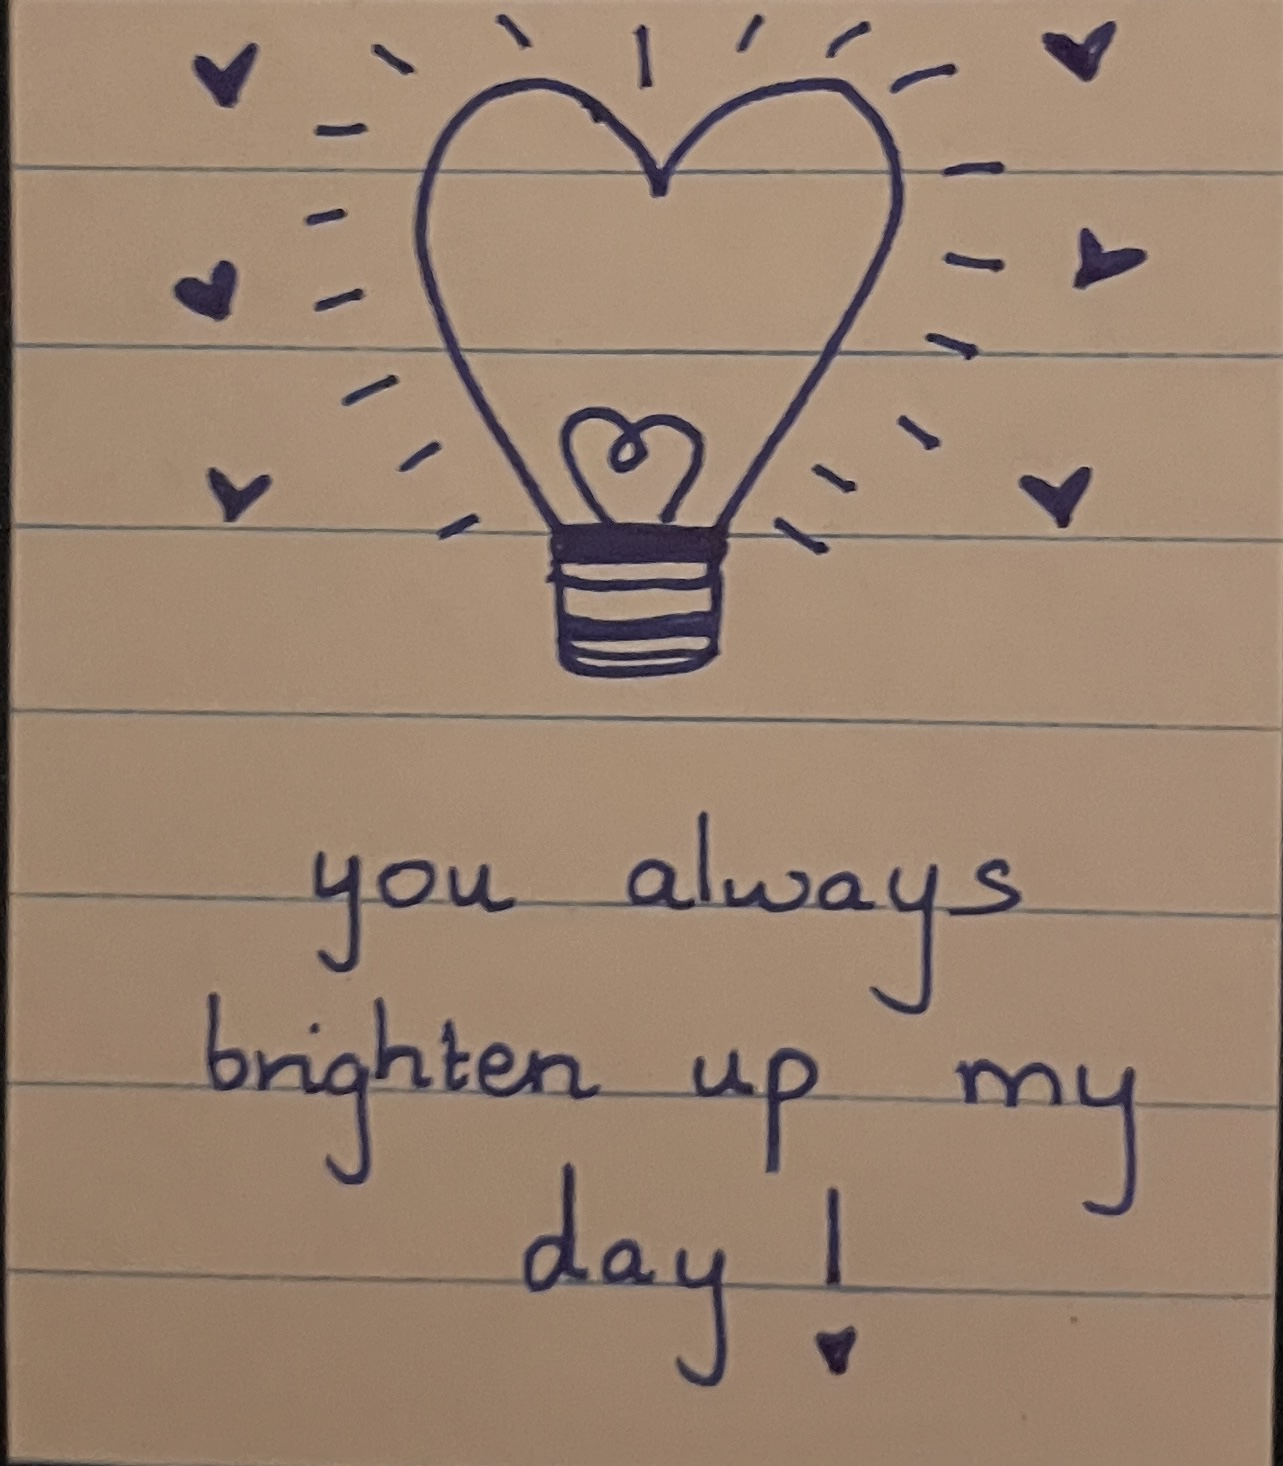 you always
brighten up my
day !